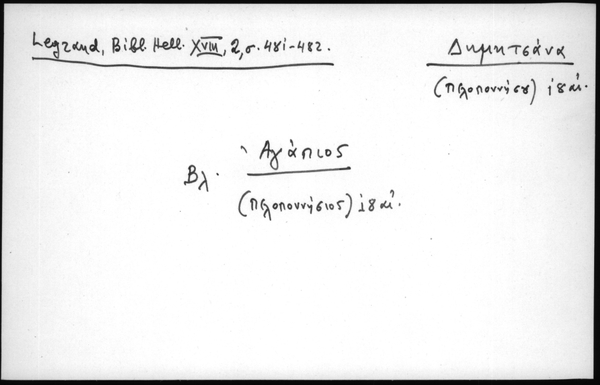 Legrand, Bibl. Hell. XVIII, 2, σ. 481-482.
Δημητσάνα
(Πελοποννήσου) ι8 αἰ.
Βλ. Ἀγάπιος
(Πελοποννήσιος) ι8 αἰ.